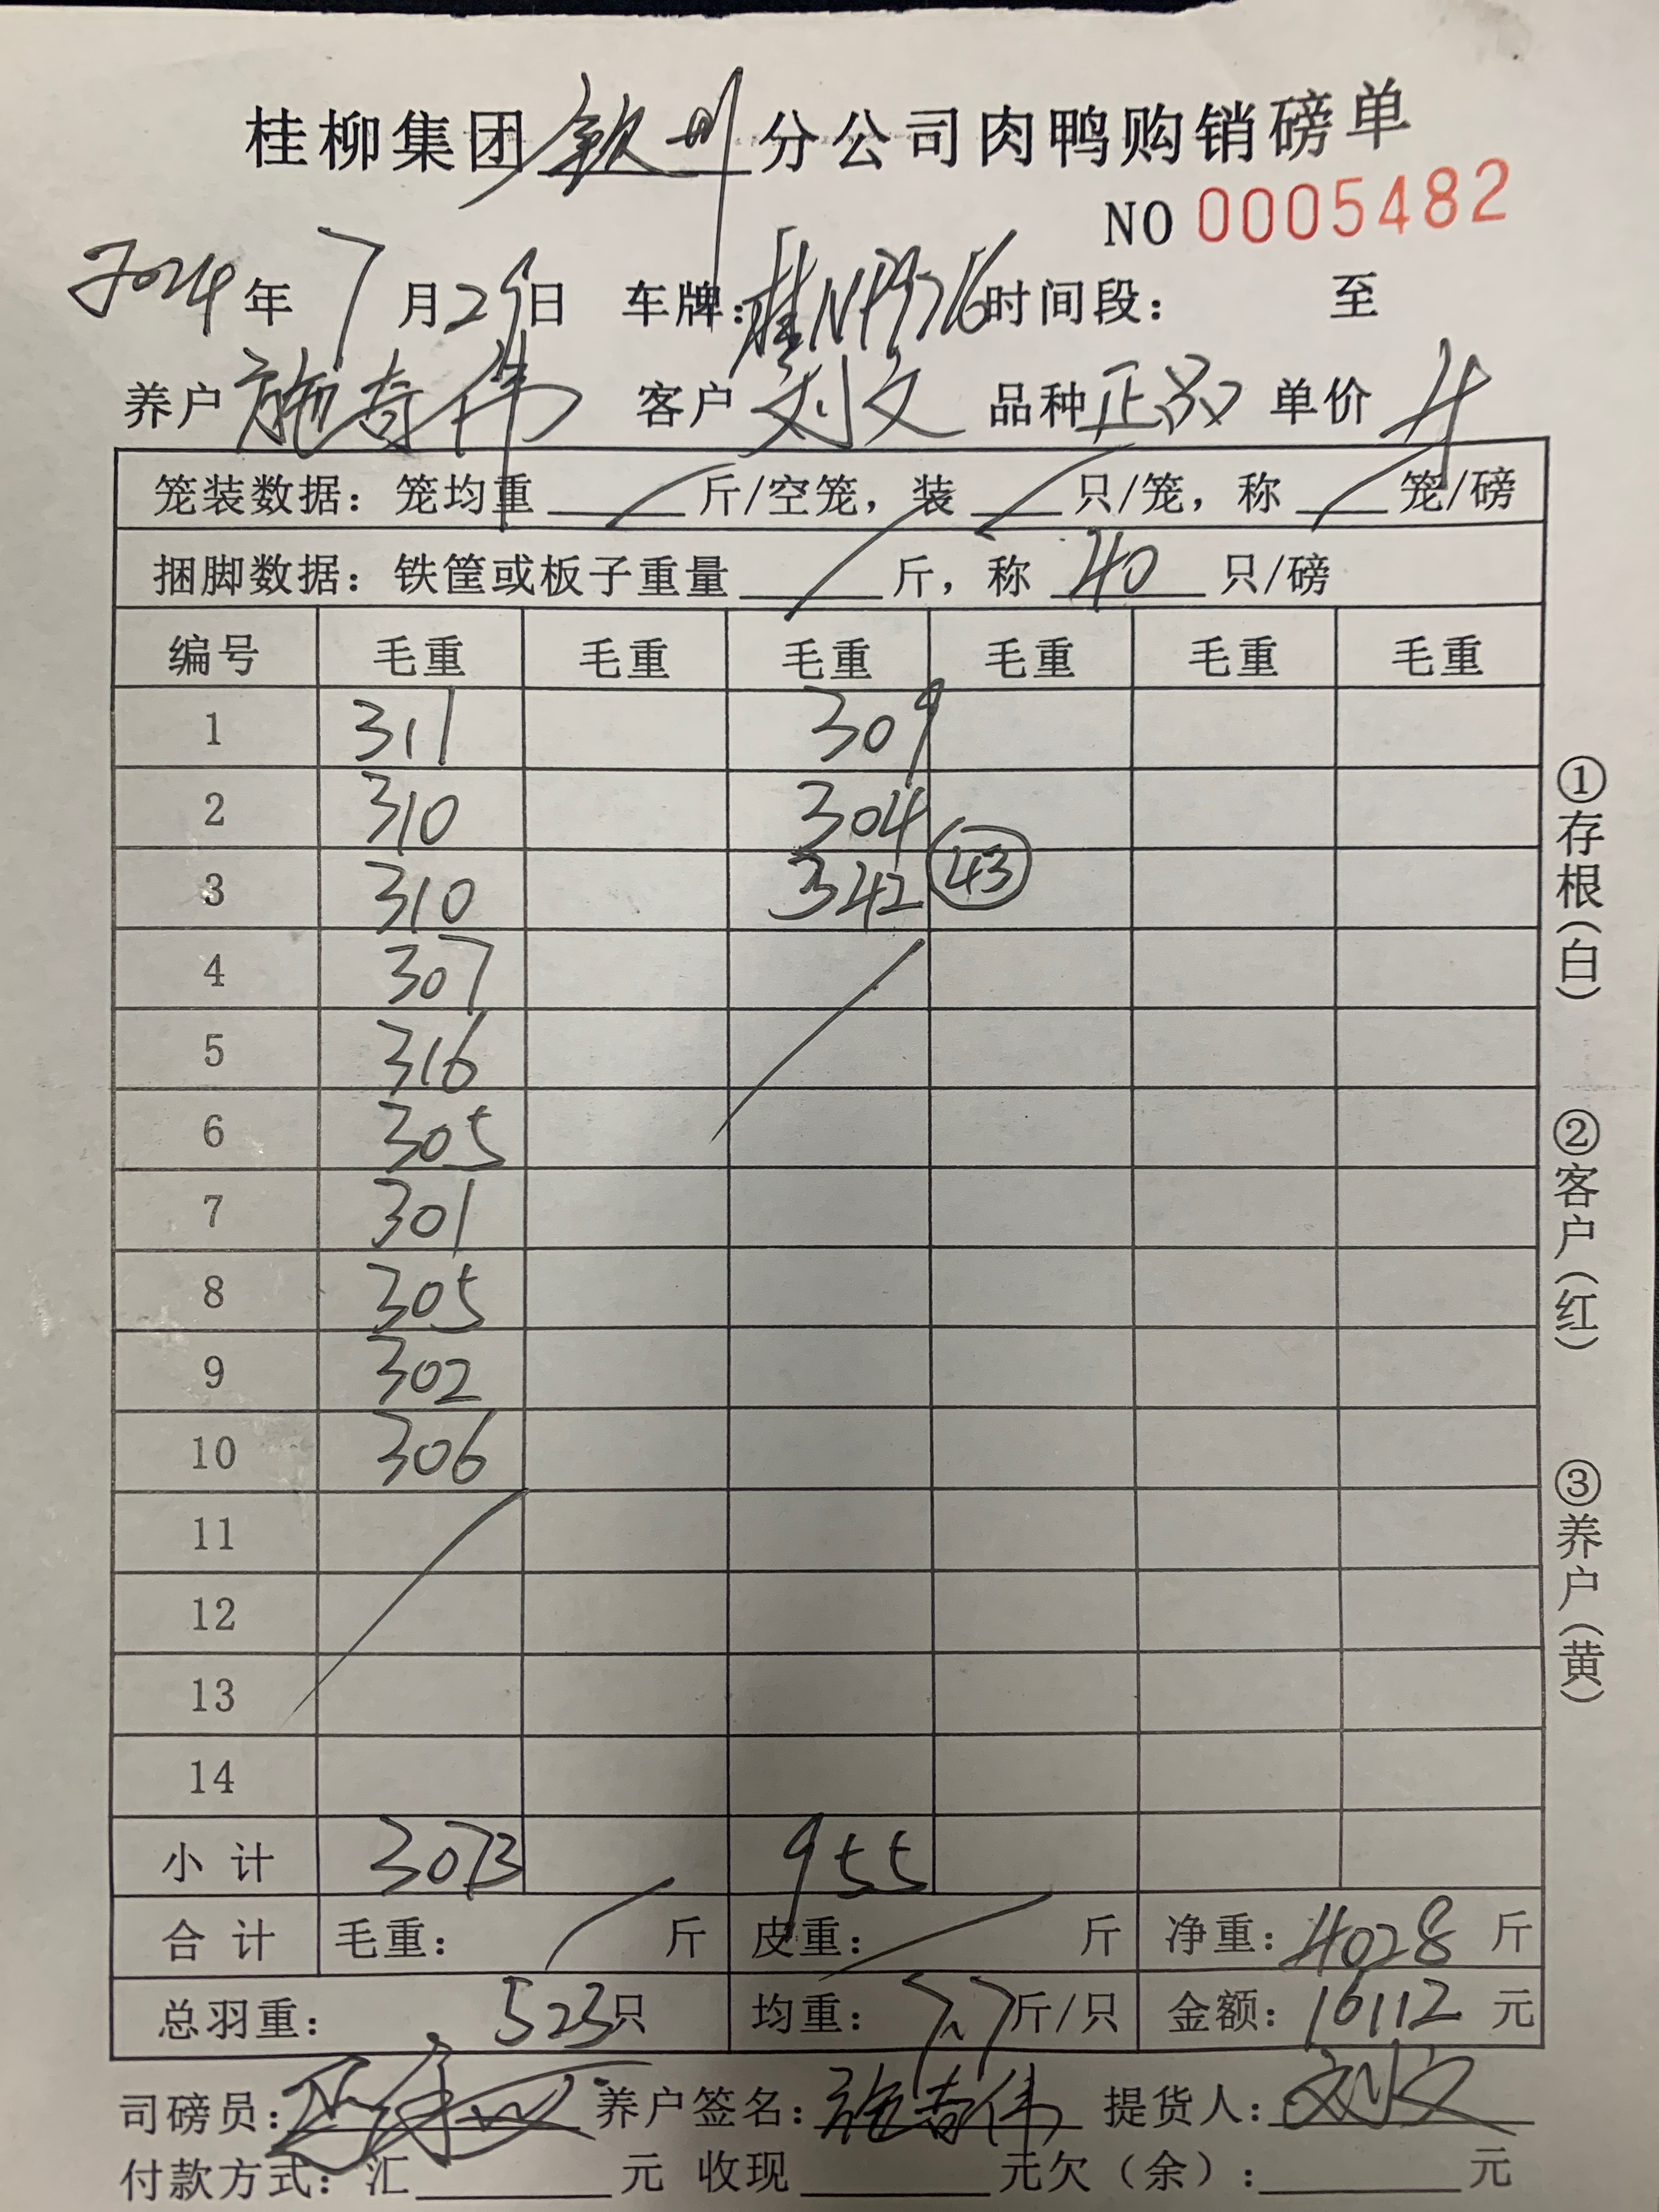 桂柳集团钦州分公司肉鸭购销磅单
NO 0005482
2024年7月29日 车牌:桂NP9376时间段: 至
养户施奇伟 客户刘文 品种正品 单价4
笼装数据: 笼均重 斤/空笼, 装 只/笼, 称 笼/磅
捆脚数据: 铁筐或板子重量 斤, 称 40 只/磅
编号 毛重 毛重 毛重 毛重 毛重 毛重
1 311 309
2 310 304
3 310 342 43
4 307
5 316
6 305
7 301
8 305
9 302
10 306
11
12
13
14
小计 3073 955
合计 毛重: 斤 皮重: 斤 净重: 4028 斤
总羽重: 523只 均重: 7.7斤/只 金额: 16112 元
司磅员: 养户签名: 施奇伟 提货人: 刘文
付款方式: 汇 元 收现 元欠(余): 元
①存根(白)
②客户(红)
③养户(黄)